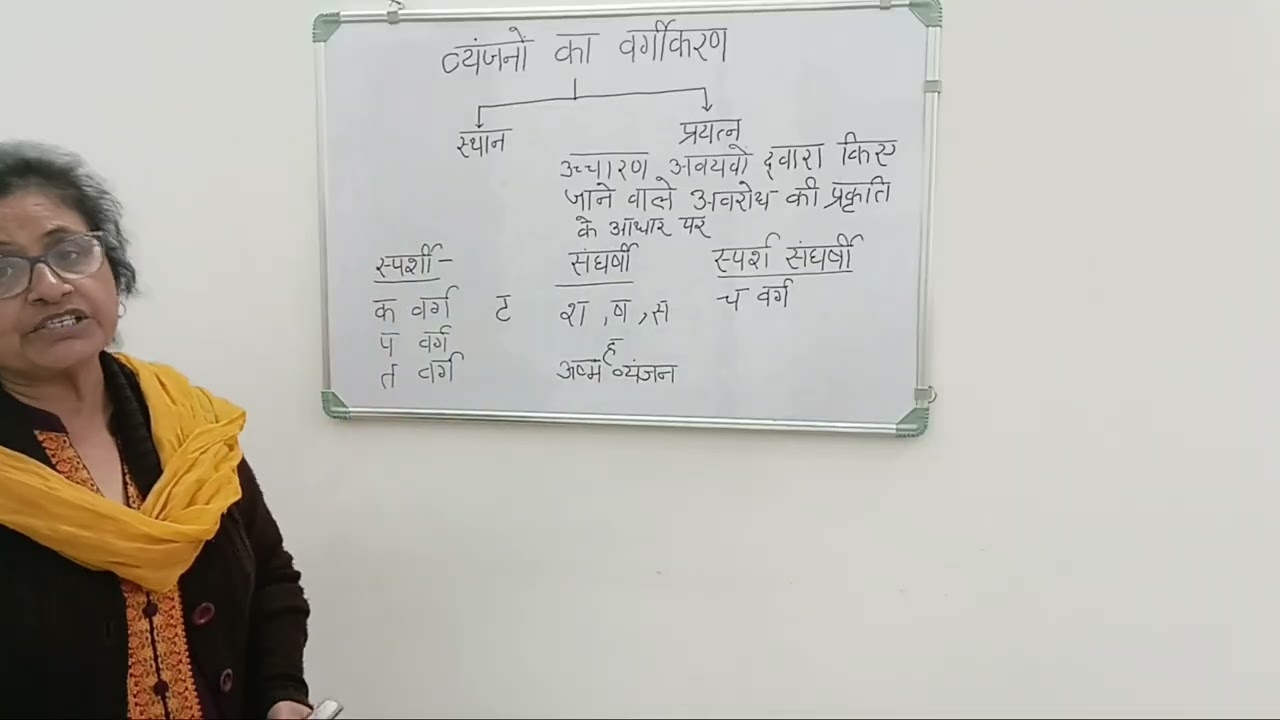 व्यंजनों का वर्गीकरण
स्थान प्रयत्न
उच्चारण अवयवों द्वारा किए
जाने वाले अवरोध की प्रकृति
के आधार पर
स्पर्शी - संघर्षी स्पर्श संघर्षी
क वर्ग ट श, ष, स च वर्ग
प वर्ग ह
त वर्ग ऊष्म व्यंजन